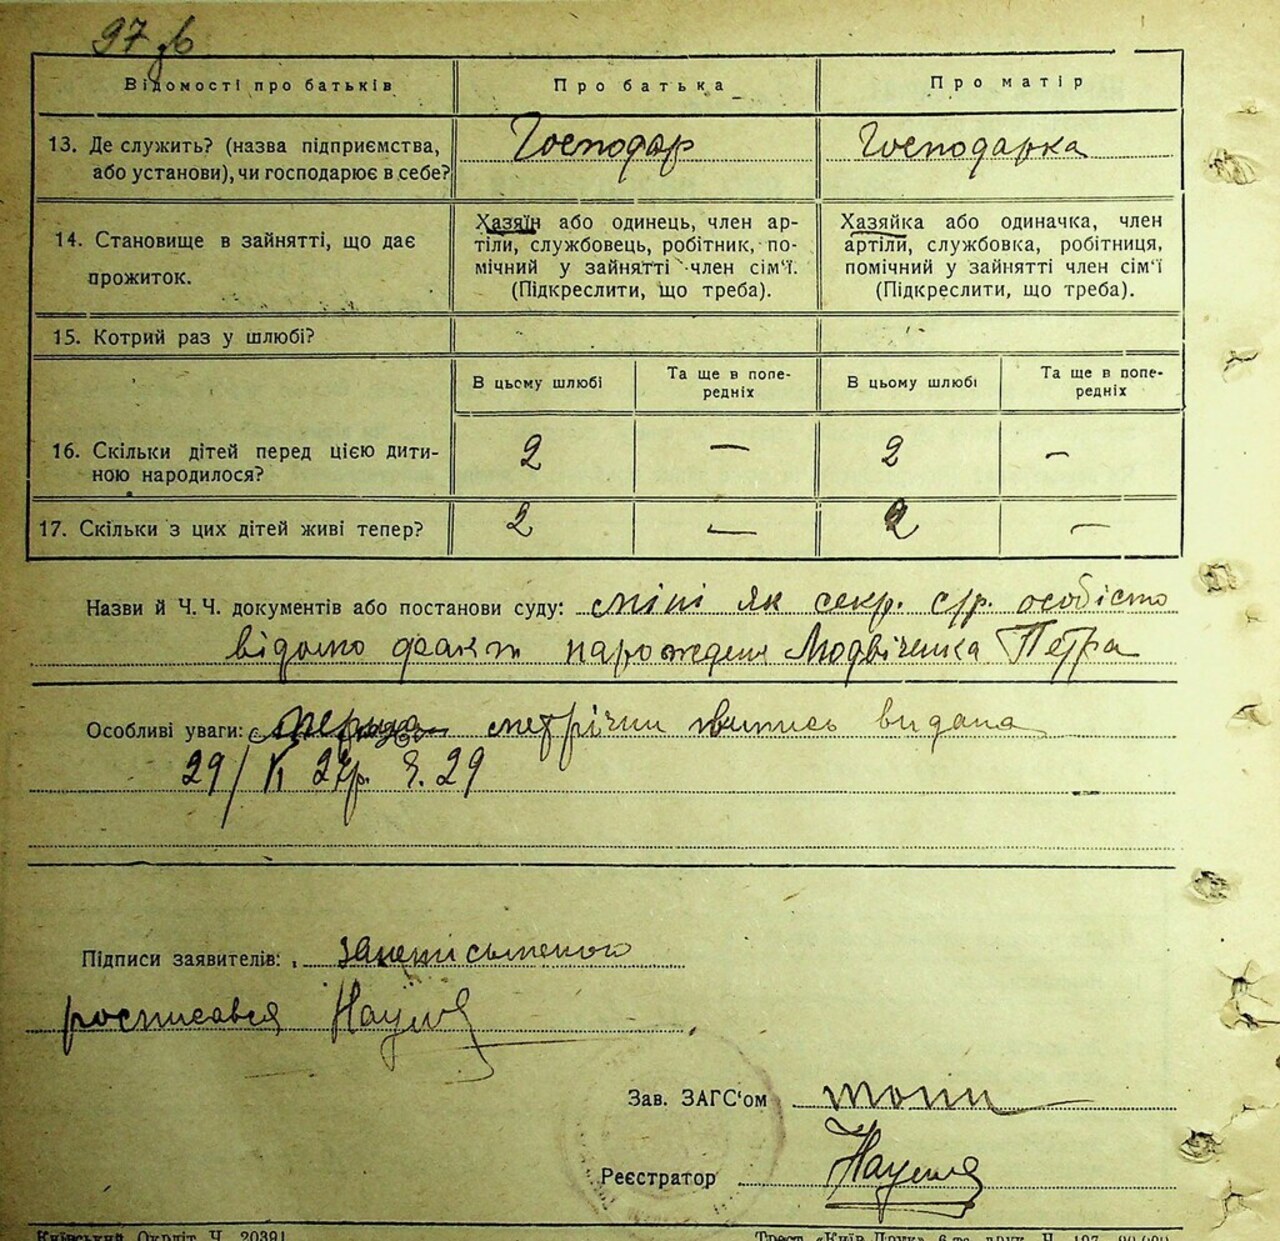 97 зв
Відомості про батьків
Про батька
Про матір
13. Де служить? (назва підприємства,
або установи), чи господарює в себе?
Господар
Господарка
14. Становище в зайнятті, що дає
прожиток.
Хазяїн або одинець, член ар-
тіли, службовець, робітник, по-
мічний у зайнятті член сім'ї.
(Підкреслити, що треба).
Хазяйка або одиначка, член
артіли, службовка, робітниця,
помічний у зайнятті член сім'ї
(Підкреслити, що треба).
15. Котрий раз у шлюбі?
В цьому шлюбі
Та ще в попе-
редніх
В цьому шлюбі
Та ще в попе-
редніх
16. Скільки дітей перед цією дити-
ною народилося?
2 — 2 —
17. Скільки з цих дітей живі тепер?
2 — 2 —
Назви й Ч. Ч. документів або постанови суду: міні як секр. с/р. особісто
відомо факт народження Медвіченка Петра
Особливі уваги: метрічни випись видана
29/VI 27р. Ч. 29
Підписи заявителів: за неписьменого
росписався
Зав. ЗАГС'ом
Реєстратор
Київський Окрліт Ч. 20391.
Трест „Київ-Друк“ 6-та друк. Ч. 197